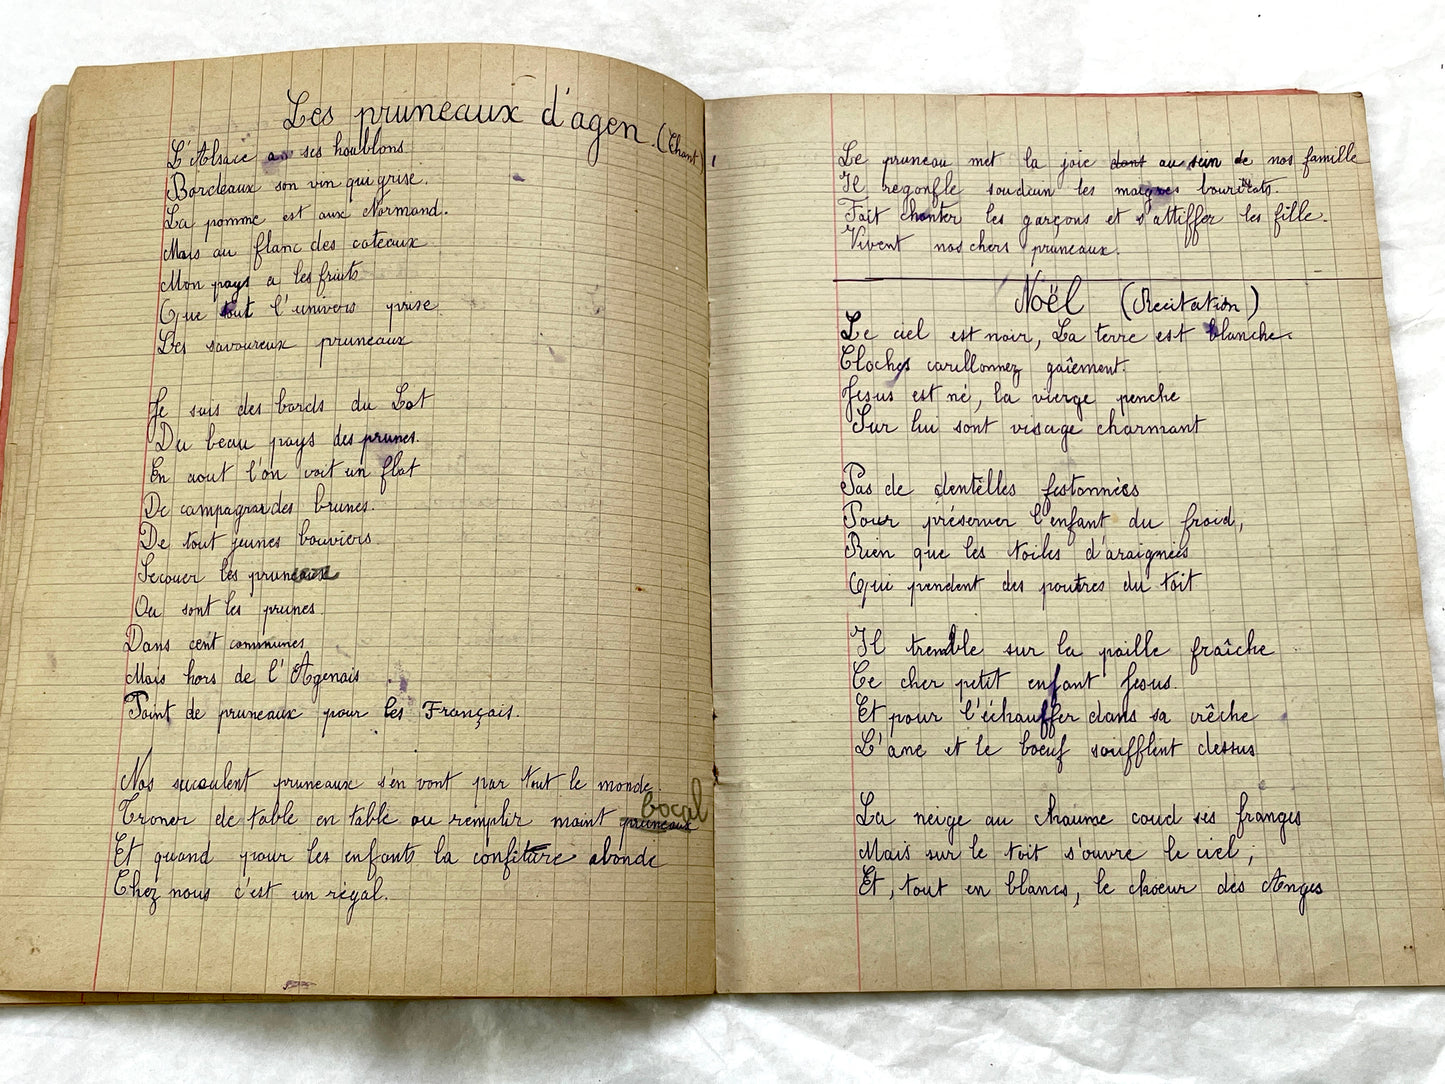 Les pruneaux d'agen. (Chant)
L'Alsace a ses houblons.
Bordeaux son vin qui grise.
La pomme est aux Normand.
Mais au flanc des coteaux
Mon pays a les fruits
Que tout l'univers prise
Les savoureux pruneaux
Je suis des bords du Lot
Du beau pays des prunes.
En aout l'on voit un flot
De campagnardes brunes.
De tout jeunes bouviers.
Secouer les pruneaux
Ou sont les prunes.
Dans cent communes
Mais hors de l'Agenais
Point de pruneaux pour les Français.
Nos succulent pruneaux s'en vont par tout le monde.
Troner de table en table ou remplir maint pruneaux bocal
Et quand pour les enfants la confiture abonde
Chez nous c'est un régal.
Le pruneau met la joie dont au sein de nos famille
Il regonfle soudiun les maigres boursicots.
Fait chanter les garçons et s'attiffer les fille.
Vivent nos chers pruneaux.
Noël (Recitation)
Le ciel est noir, La terre est blanche.
Cloches carillonnez gaîement.
Jesus est né, la vierge penche
Sur lui sont visage charmant
Pas de dentelles festonnées
Pour préserver l'enfant du froid,
Rien que les toiles d'araignées
Qui pendent des poutres du toit
Il tremble sur la paille fraîche
Ce cher petit enfant Jesus.
Et pour l'échauffer dans sa crêche
L'ane et le boeuf soufflent dessus
La neige au chaume coud ses franges
Mais sur le toit s'ouvre le ciel;
Et, tout en blancs, le choeur des Anges